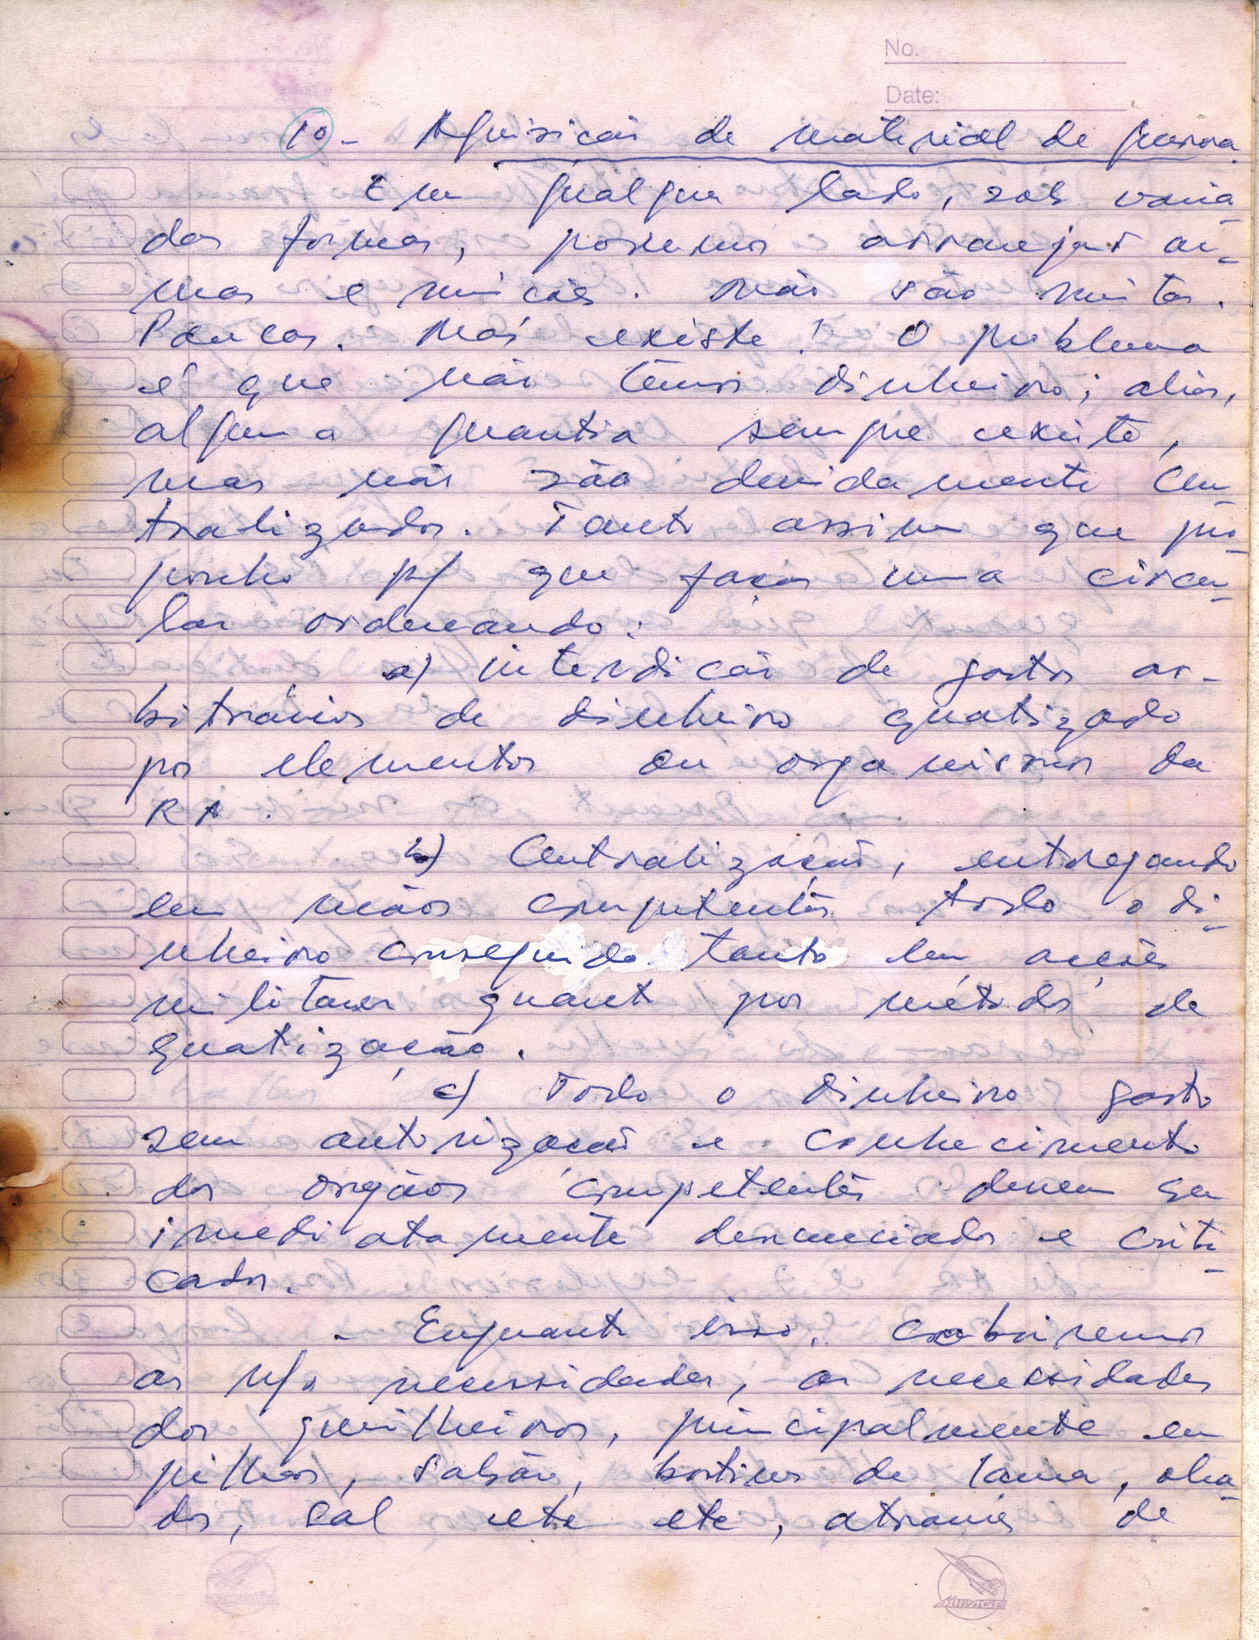 No.
Date:
10 - Aquisição de material de guerra
Em qualquer lado, sob varia-
das formas, podemos arranjar ar-
mas e munições. Não são muitas.
Poucas. Mas existe! O problema
é que não temos dinheiro; aliás,
alguma quantia sempre existe,
mas não são devidamente cen-
tralizados. Tanto assim que pro-
ponho p/ que faças uma circu-
lar ordenando:
a) interdição de gastos ar-
bitrários de dinheiro quatizado
por elementos ou organismos da
RA.
b) Centralização, entregando
em mãos competentes todo o di-
nheiro conseguido tanto em acções
militares quanto por método de
quatização.
c) Todo o dinheiro gasto
sem autorização e conhecimento
dos orgãos competentes devem ser
imediatamente denunciados e criti-
cados.
- Enquanto isso, cobriremos
as n/s necessidades, as necessidades
dos guerilheiros, principalmente em
pilhas, sabão, botins de lama, olea-
dos, sal etc etc, através de